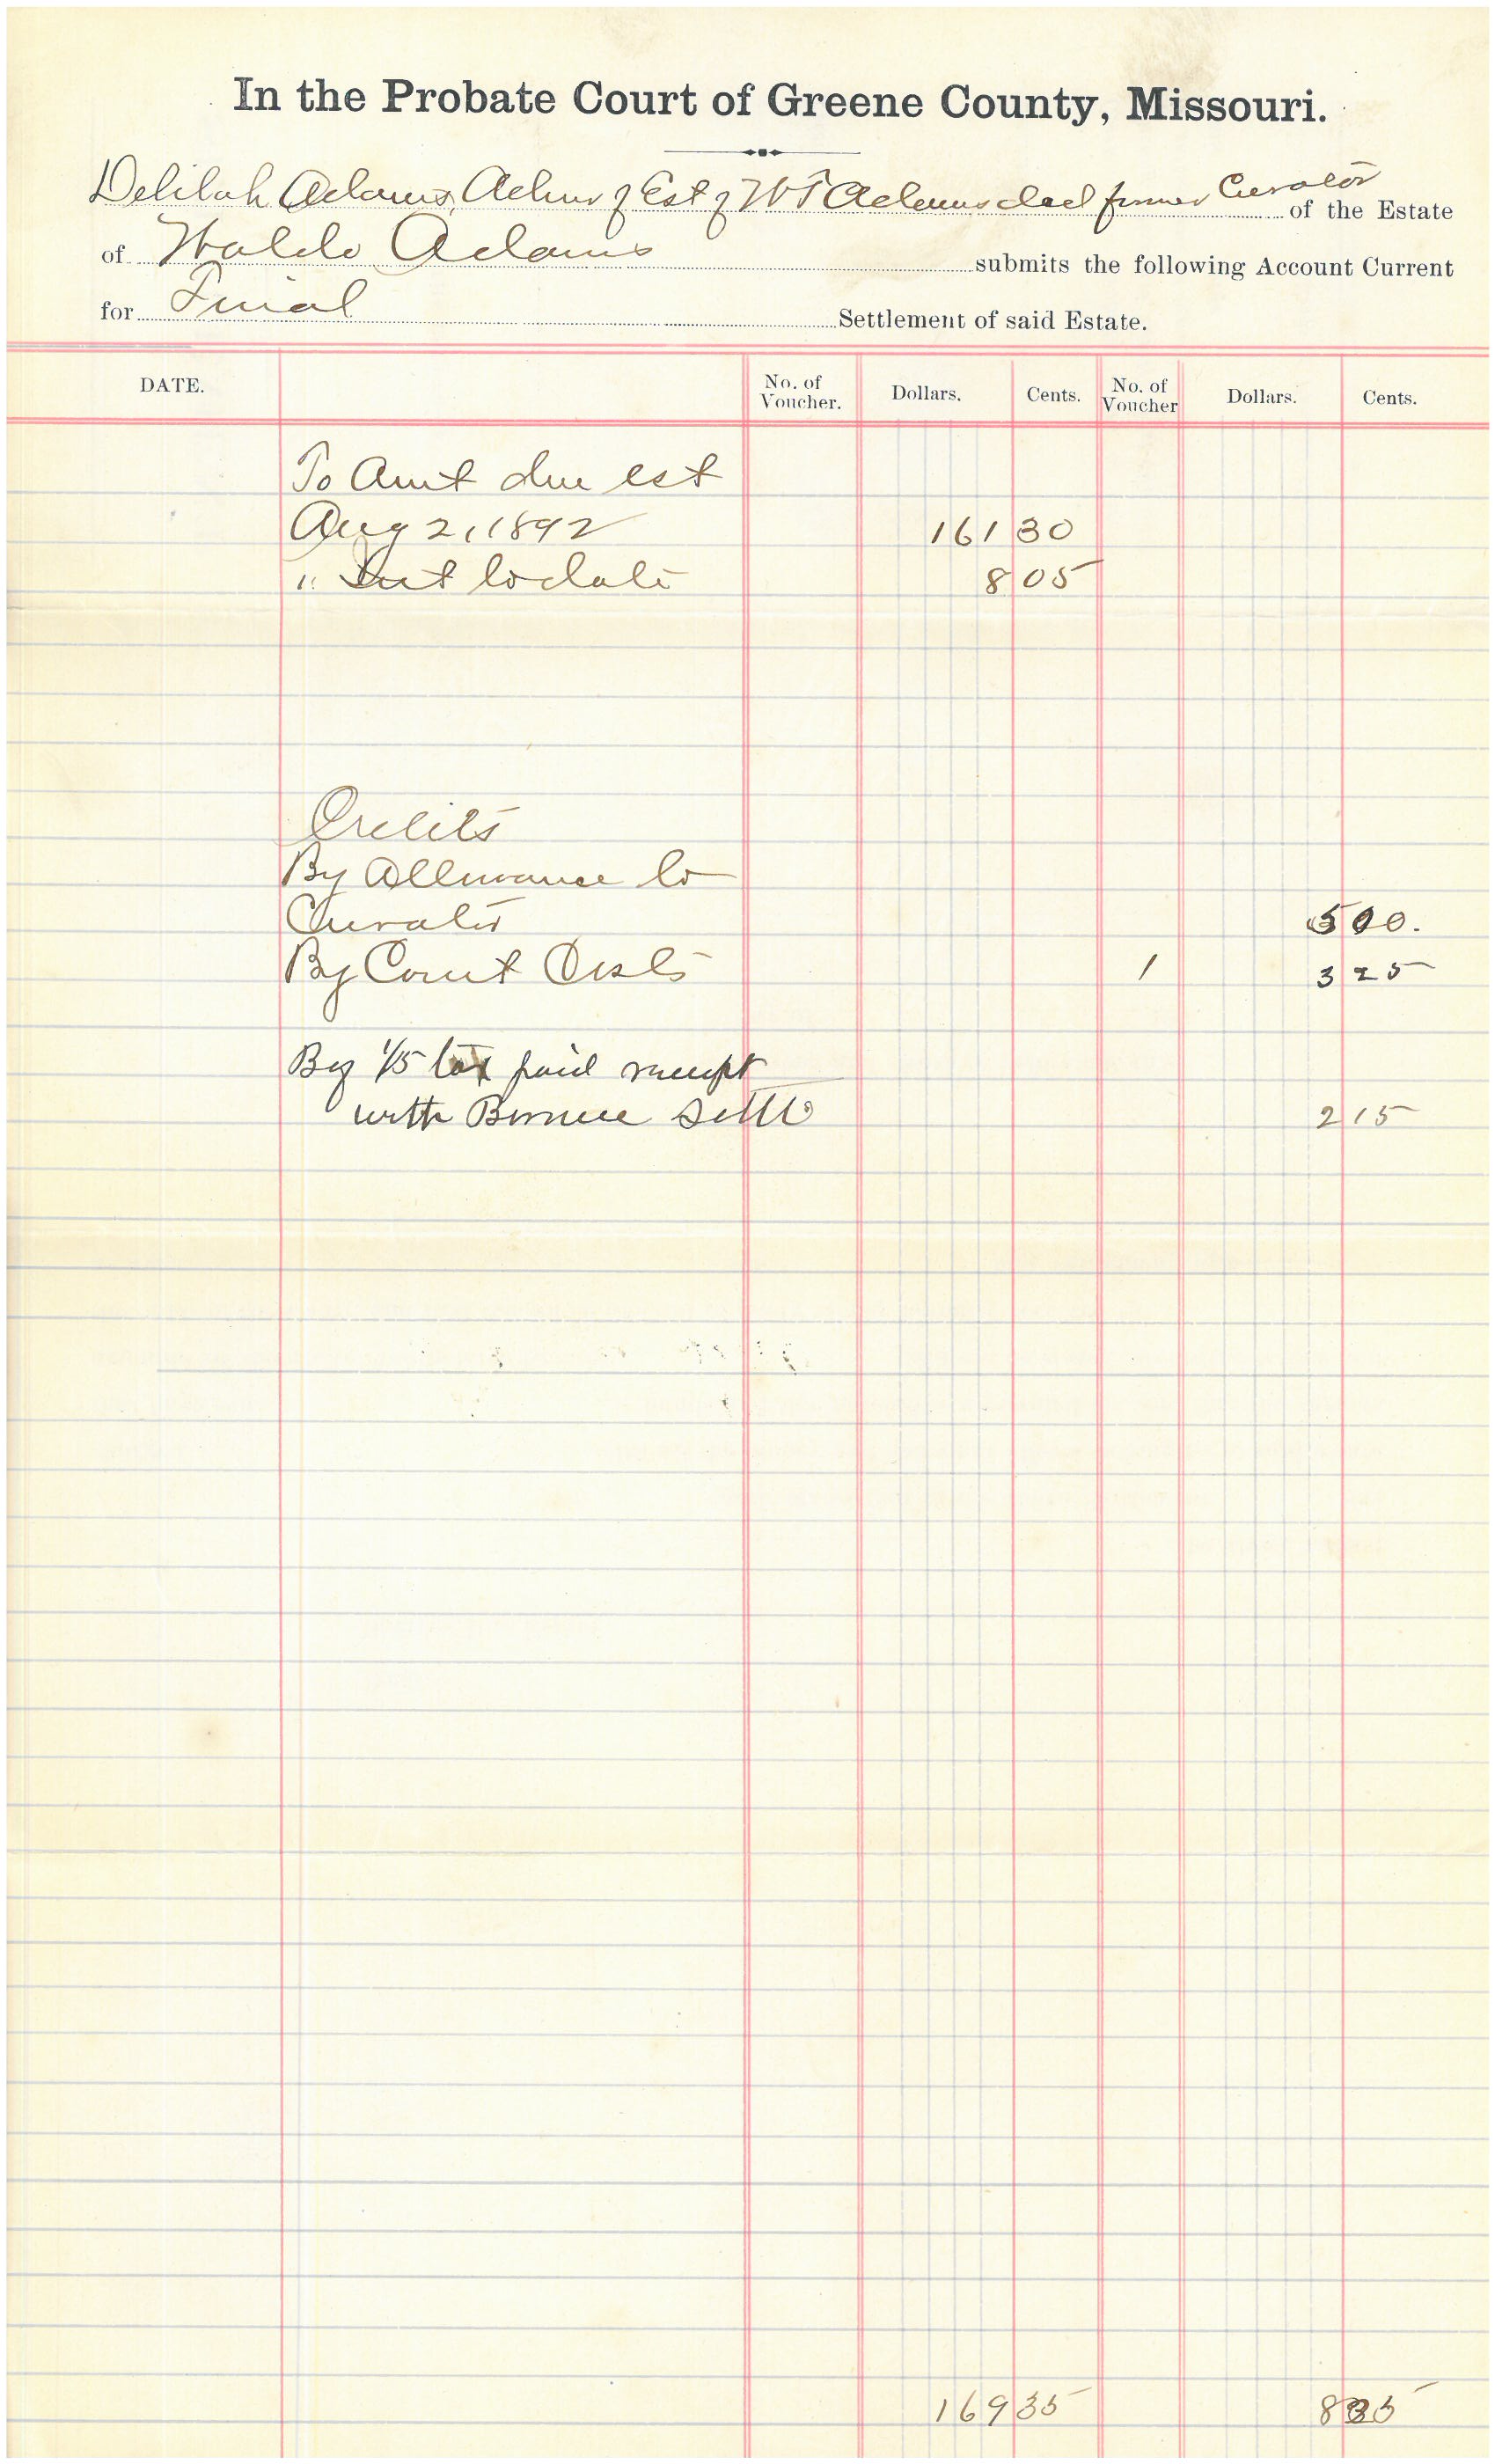 In the Probate Court of Greene County, Missouri.
Delilah Adams, Admr of Est of W T Adams decd former Curator of the Estate
of Waldo Adams submits the following Account Current
for Final Settlement of said Estate.
DATE. No. of Voucher. Dollars. Cents. No. of Voucher Dollars. Cents.
To Amt due est
Aug 2, 1892 161 30
" Int to date 8 05
Credits
By Allowance to
Curator 5 00.
By Court Costs 1 3 25
By 1/5 tax paid receipt
with Bonnie Settl 2 15
169 35 8